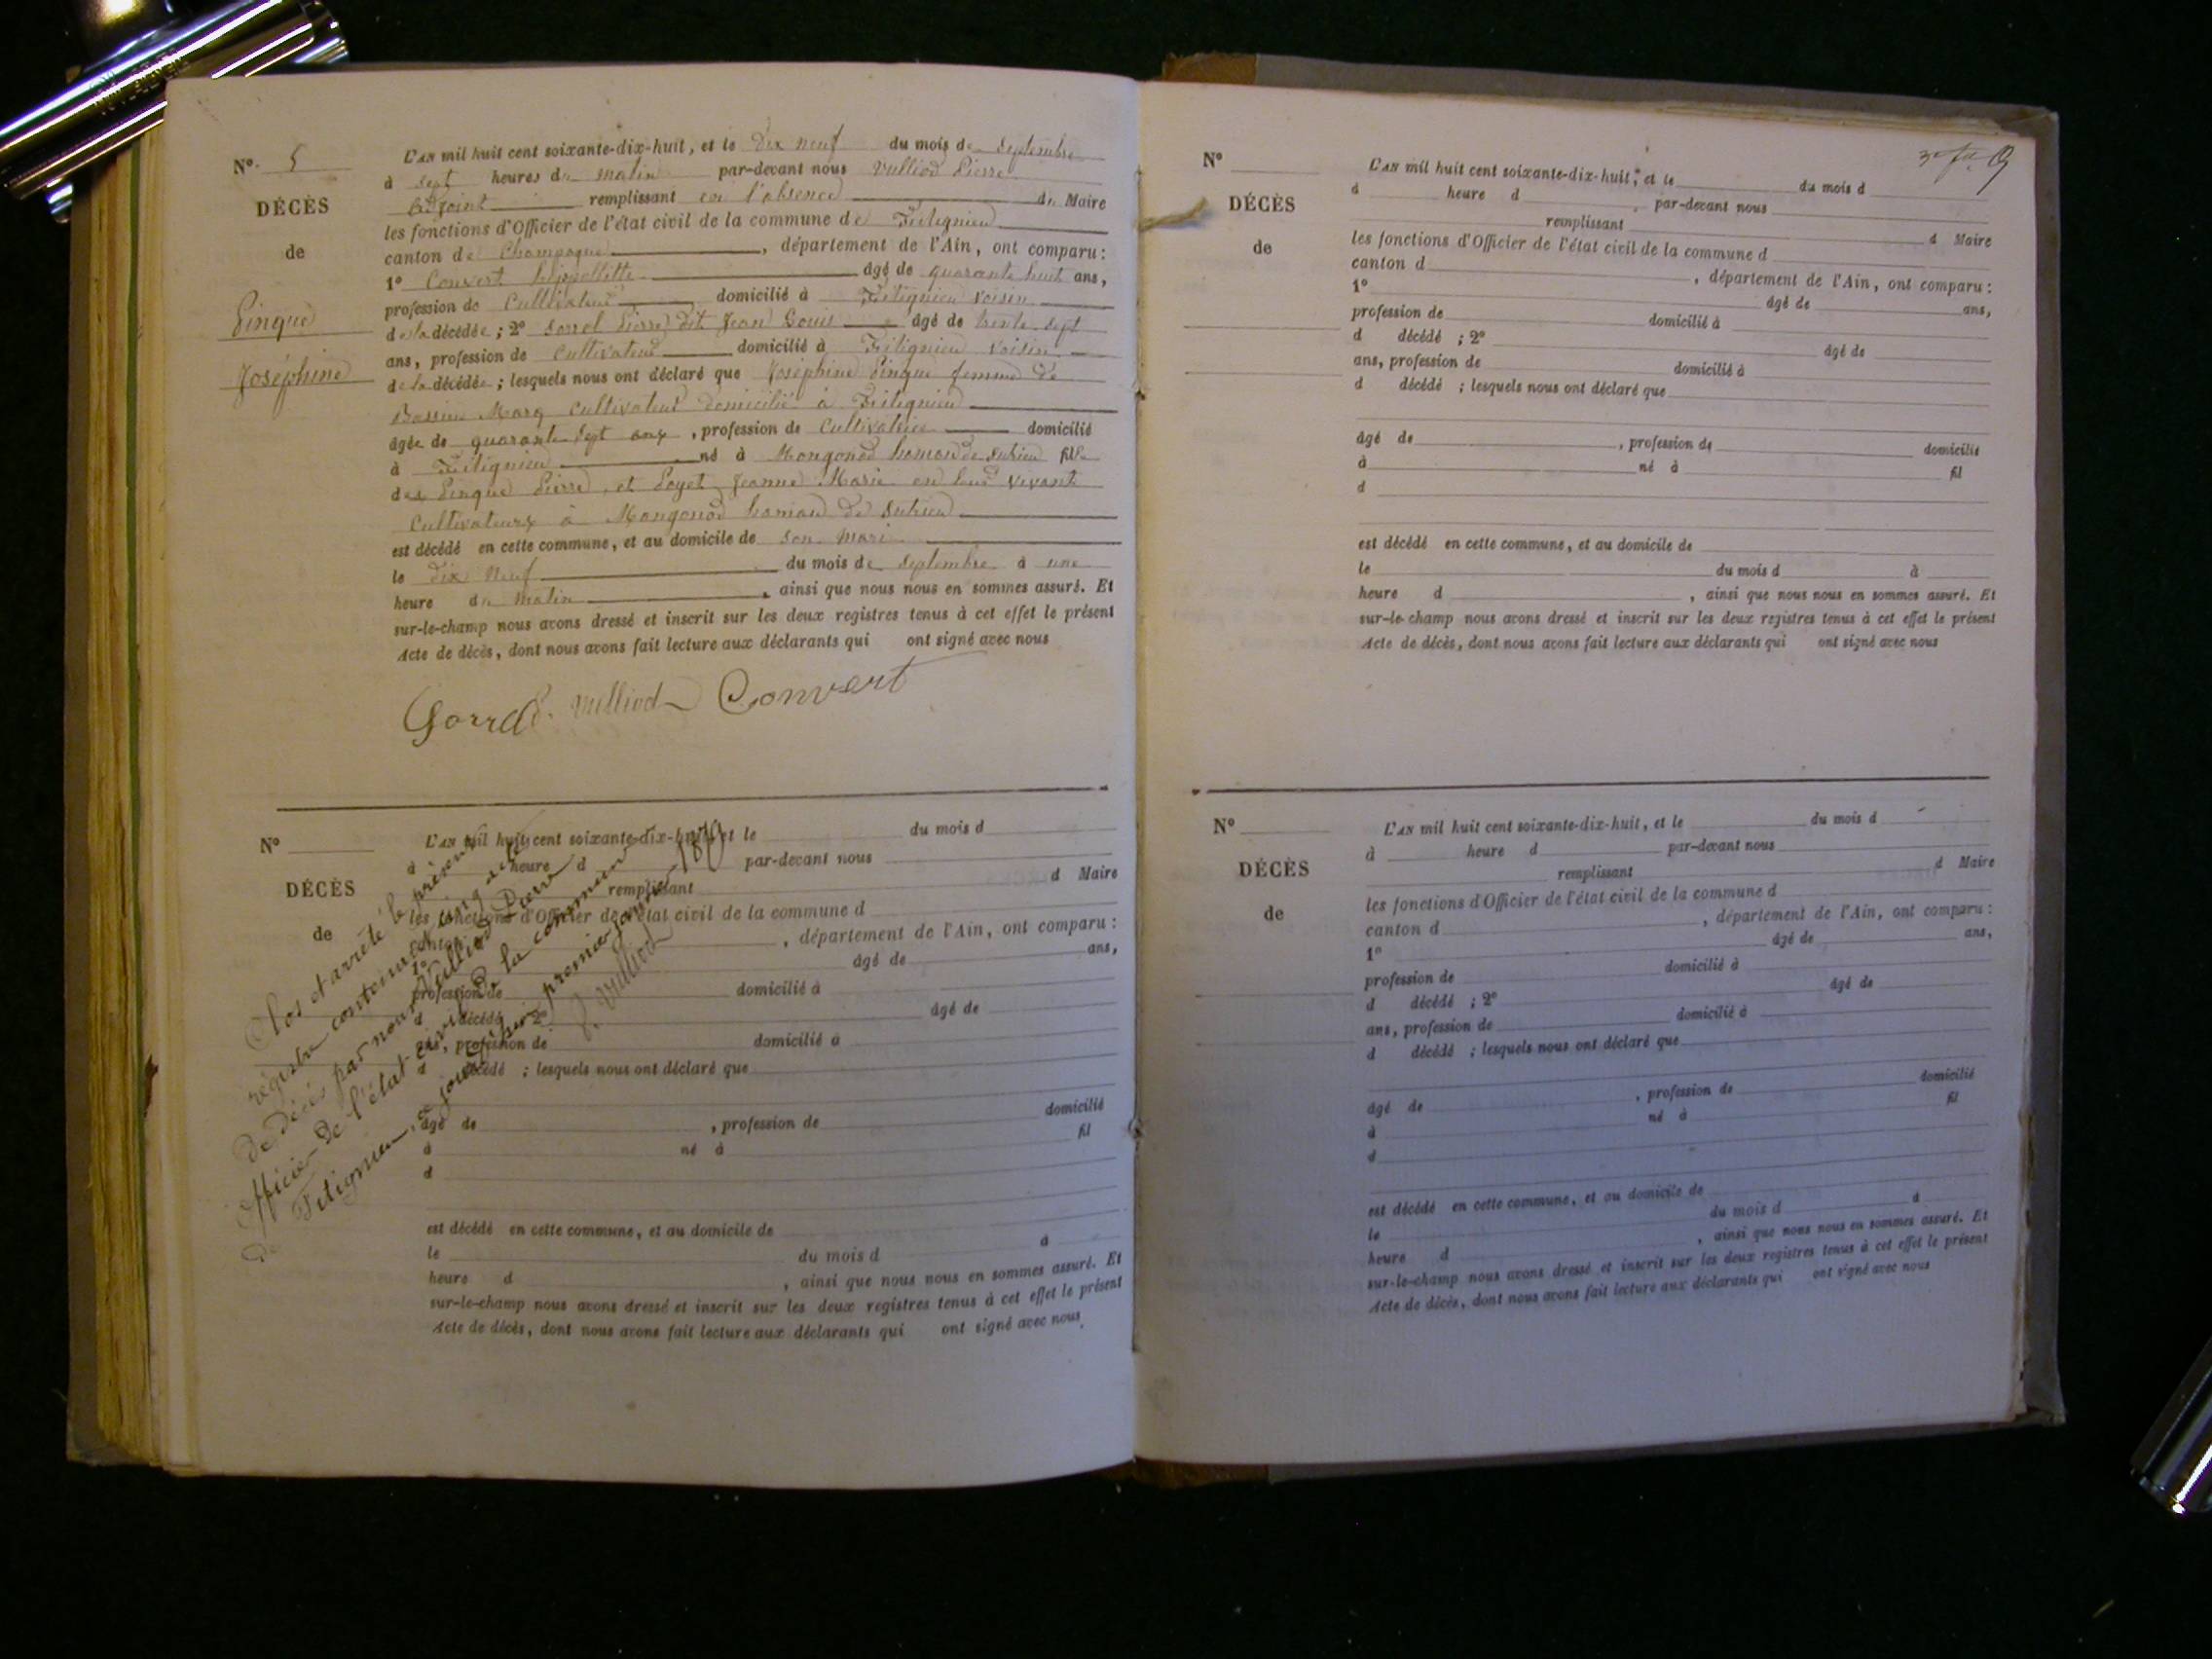 N° 5
DÉCÈS
de
Pingue
Joséphine
L'AN mil huit cent soixante-dix-huit, et le dix neuf du mois de septembre
à sept heures du matin par-devant nous Vulliod Pierre
adjoint remplissant en l'absence du Maire
les fonctions d'Officier de l'état civil de la commune de Fitignieu
canton de Champagne, département de l'Ain, ont comparu :
1° Convert hyppollitte âgé de quarante huit ans,
profession de Cultivateur domicilié à Fitignieu voisin
de la décédée ; 2° Gorrel Pierre dit Jean Louis âgé de trente sept
ans, profession de Cultivateur domicilié à Fitignieu voisin
de la décédée ; lesquels nous ont déclaré que Joséphine Pingue femme de
Marq Cultivateur domicilié à Fitignieu
âgée de quarante sept ans, profession de Cultivatrice domicilié
à Fitignieu né à Mongonod hameau de Sutrieu fille
des Pingue Pierre, et Jeanne Marie en leur vivant
Cultivateurs à Mongonod hameau de Sutrieu
est décédé en cette commune, et au domicile de son mari
le dix neuf du mois de septembre à une
heure du matin, ainsi que nous nous en sommes assuré. Et
sur-le-champ nous avons dressé et inscrit sur les deux registres tenus à cet effet le présent
Acte de décès, dont nous avons fait lecture aux déclarants qui ont signé avec nous
Gorrel P. Vulliod Convert
N°
DÉCÈS
de
L'AN mil huit cent soixante-dix-huit, et le du mois d
à heure d par-devant nous
remplissant d Maire
les fonctions d'Officier de l'état civil de la commune d
canton d, département de l'Ain, ont comparu :
1° âgé de ans,
profession de domicilié à
d décédé ; 2° âgé de
ans, profession de domicilié à
d décédé ; lesquels nous ont déclaré que
âgé de, profession de domicilié
à né à fil
d
est décédé en cette commune, et au domicile de
le du mois d à
heure d, ainsi que nous nous en sommes assuré. Et
sur-le-champ nous avons dressé et inscrit sur les deux registres tenus à cet effet le présent
Acte de décès, dont nous avons fait lecture aux déclarants qui ont signé avec nous
Clos et arrêté le présent
régistre contenant cinq actes
de décès par nous Vulliod Pierre
officier de l'état civil de la commune
de Fitignieu, aujourd'hui premier janvier 1879
P. Vulliod
N°
DÉCÈS
de
L'AN mil huit cent soixante-dix-huit, et le du mois d
à heure d par-devant nous
remplissant d Maire
les fonctions d'Officier de l'état civil de la commune d
canton d, département de l'Ain, ont comparu :
1° âgé de ans,
profession de domicilié à
d décédé ; 2° âgé de
ans, profession de domicilié à
d décédé ; lesquels nous ont déclaré que
âgé de, profession de domicilié
à né à fil
d
est décédé en cette commune, et au domicile de
le du mois d à
heure d, ainsi que nous nous en sommes assuré. Et
sur-le-champ nous avons dressé et inscrit sur les deux registres tenus à cet effet le présent
Acte de décès, dont nous avons fait lecture aux déclarants qui ont signé avec nous
N°
DÉCÈS
de
L'AN mil huit cent soixante-dix-huit, et le du mois d
à heure d par-devant nous
remplissant d Maire
les fonctions d'Officier de l'état civil de la commune d
canton d, département de l'Ain, ont comparu :
1° âgé de ans,
profession de domicilié à
d décédé ; 2° âgé de
ans, profession de domicilié à
d décédé ; lesquels nous ont déclaré que
âgé de, profession de domicilié
à né à fil
d
est décédé en cette commune, et au domicile de
le du mois d à
heure d, ainsi que nous nous en sommes assuré. Et
sur-le-champ nous avons dressé et inscrit sur les deux registres tenus à cet effet le présent
Acte de décès, dont nous avons fait lecture aux déclarants qui ont signé avec nous